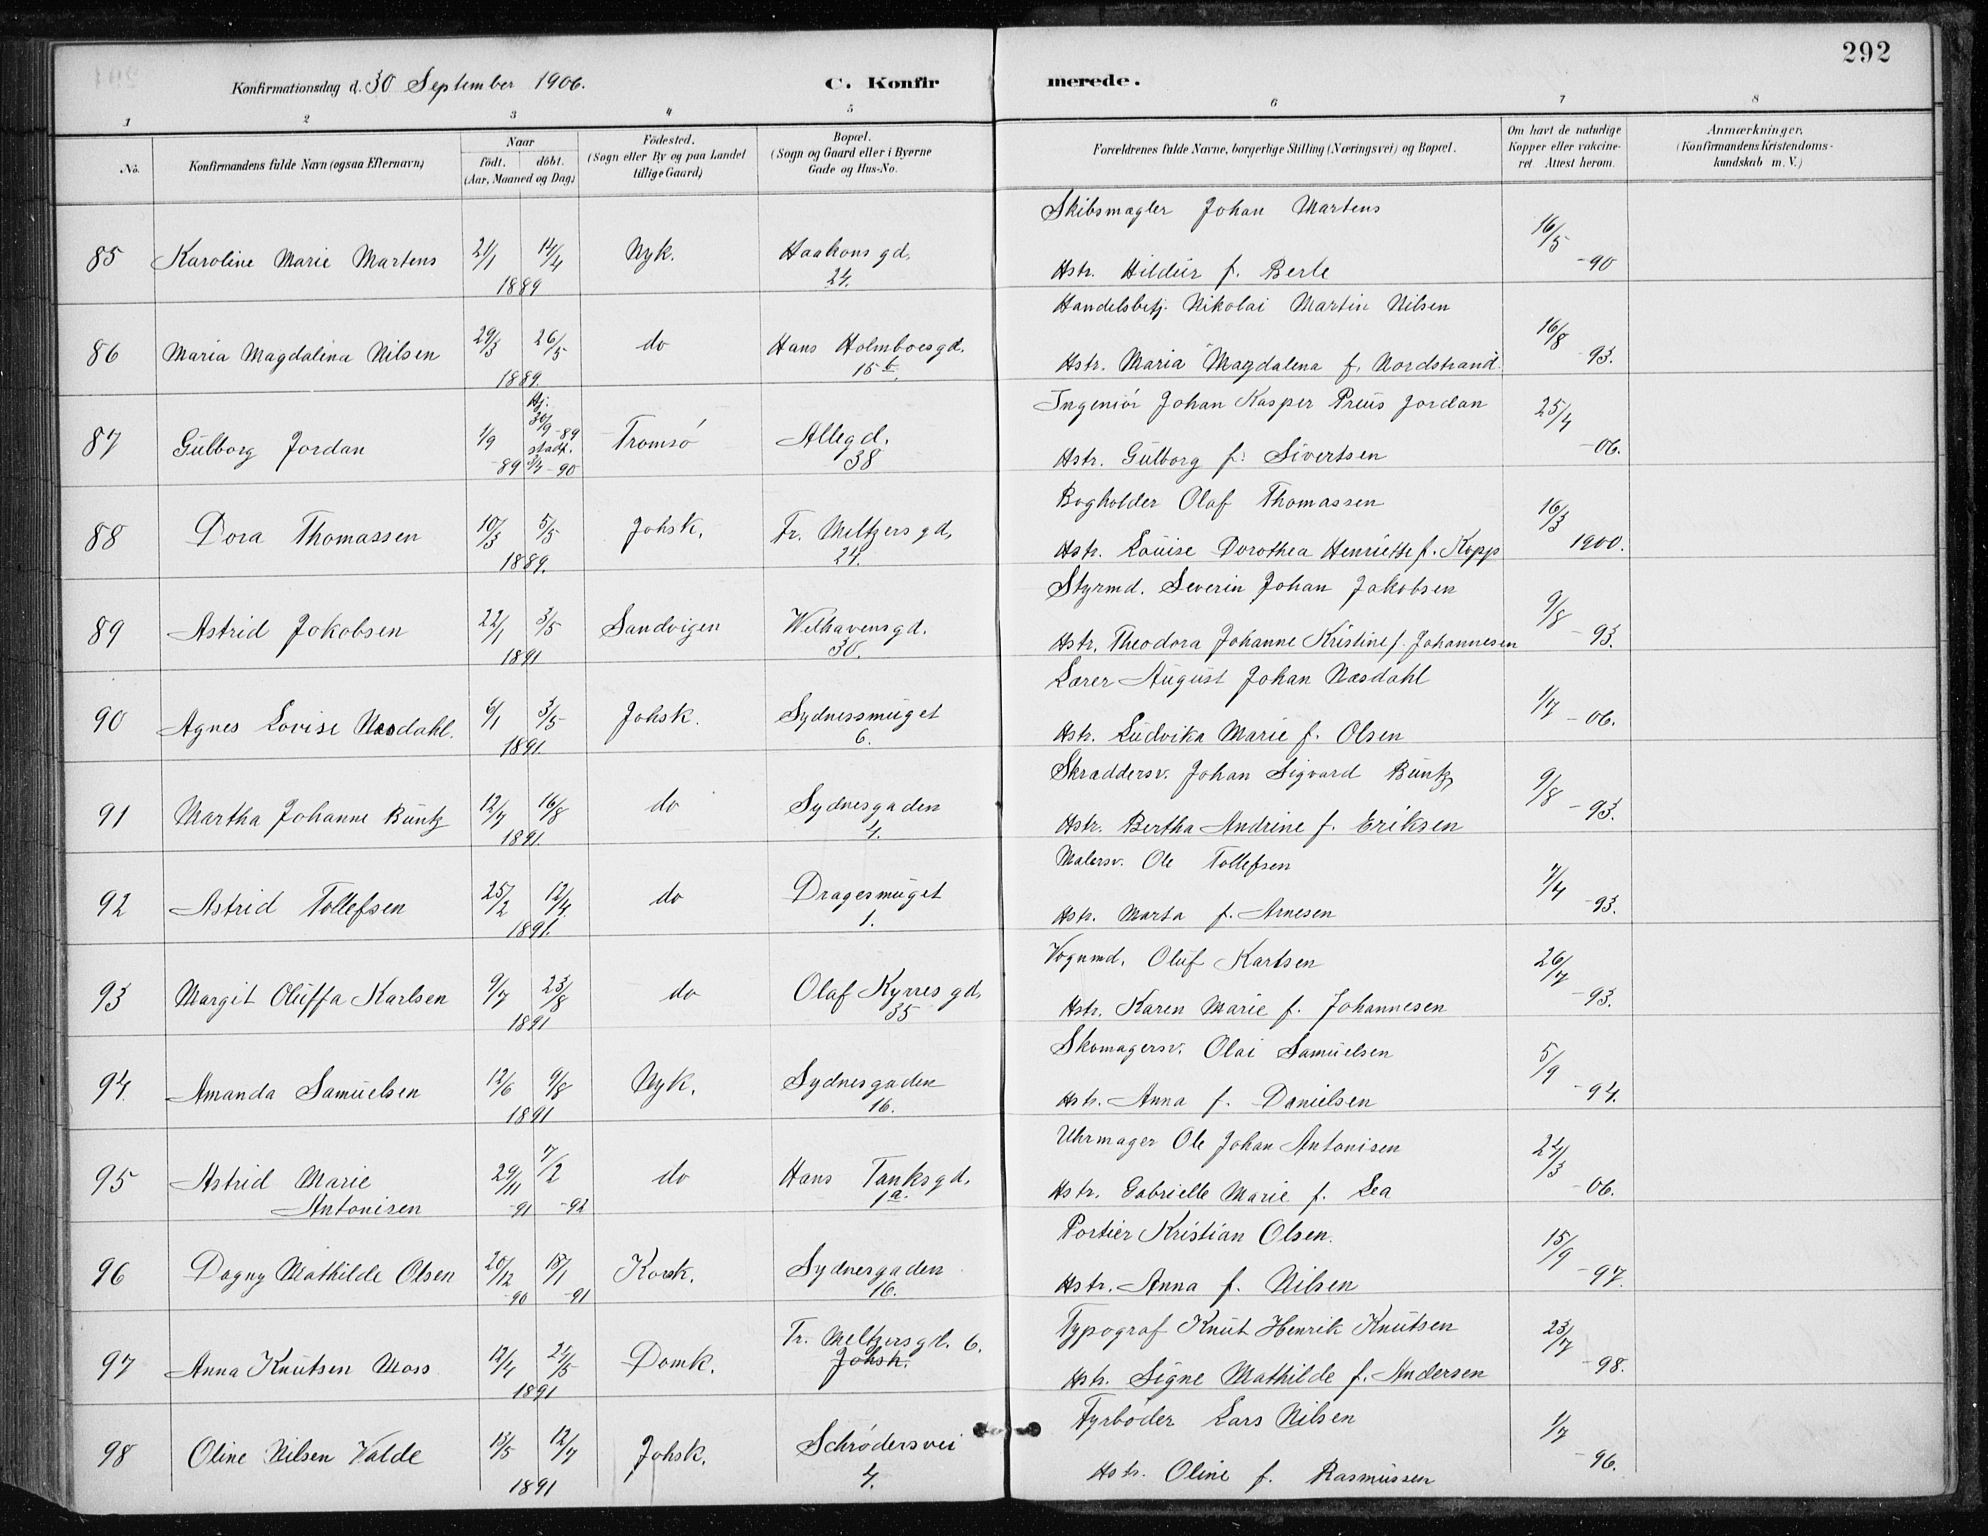 292
Konfirmationsdag d. 30 September 1906.
C. Konfirmerede.
1 2 3 4 5 6 7 8
No.
Konfirmandens fulde Navn (ogsaa Efternavn)
Naar
födt. döbt.
(Aar, Maaned og Dag.)
Födested.
(Sogn eller By og paa Landet
tillige Gaard)
Bopæl.
(Sogn og Gaard eller i Byerne
Gade og Hus-No.
Forældrenes fulde Navne, borgerlige Stilling (Næringsvei) og Bopæl.
Om havt de naturlige
Kopper eller vakcine-
ret. Attest herom.
Anmærkninger,
(Konfirmandens Kristendoms-
kundskab m. V.)
85 Karoline Marie Martens 21/1 14/4 1889 Nyk. Haakonsgd. 24. Skibsmægler Johan Martens
Hstr. Hildur f. Berle 16/5 -90
86 Maria Magdalina Nilsen 29/3 26/5 1889. do Hans Holmboesgd. 15 b. Handelsbetj. Nikolai Martin Nilsen
Hstr. Maria Magdalena f. Nordstrand. 16/8 -93.
87 Gulborg Jordan 1/9 -89 Hj. 30/9 -89 stadf. 3/4 -90 Tromsø Allegd. 38 Ingeniør Johan Kasper Preus Jordan
Hstr. Gulborg f. Sivertsen 25/4 -06.
88 Dora Thomassen 10/3 5/5 1889. Johsk. Fr. Meltzersgd. 24. Bogholder Olaf Thomassen
Hstr. Louise Dorothea Henriette f. Kopp 16/3 1900.
89 Astrid Jokobsen 22/1 3/5 1891 Sandvigen Welhavensgd. 30. Styrmd. Severin Johan Jakobsen
Hstr. Theodora Johanne Kristine f. Johannesen 9/8 -93.
90 Agnes Lovise Næsdahl. 6/1 3/5 1891. Johsk. Sydnessmuget 6. Lærer August Johan Næsdahl
Hstr. Ludvika Marie f. Olsen 1/7 -06.
91 Martha Johanne Buntz 12/7 16/8 1891. do Sydnesgaden 4. Skræddersv. Johan Sigvard Buntz
Hstr. Bertha Andrine f. Eriksen 9/8 -93.
92 Astrid Tollefsen 25/2 12/4 1891. do Dragesmuget 1. Malersv. Ole Tollefsen
Hstr. Marta f. Arnesen 7/4 -93.
93 Margit Oluffa Karlsen 9/7 23/8 1891 do Olaf Kyrresgd. 35 Vognmd. Oluf Karlsen
Hstr. Karen Marie f. Johannesen 26/7 -93.
94. Amanda Samuelsen 12/6 9/8 1891 Nyk. Sydnesgaden 16. Skomagersv. Olai Samuelsen
Hstr. Anna f. Danielsen 5/9 -94.
95 Astrid Marie Antonisen 29/11 -91 7/2 -92 do Hans Tanksgd. 1a. Uhrmager Ole Johan Antonisen
Hstr. Gabrielle Marie f. Lea 24/3 -06.
96 Dagny Mathilde Olsen 20/12 -90 18/1 -91 Korsk. Sydnesgaden 16. Portier Kristian Olsen.
Hstr. Anna f. Nilsen 15/9 -97.
97 Anna Knutsen Moss 12/4 24/5 1891 Domk. Fr. Meltzersgd. 6. Johsk. Typograf Knut Henrik Knutsen
Hstr. Signe Mathilde f. Andersen 23/7 -98.
98 Oline Nilsen Valde 13/5 12/7 1891 Johsk. Schrødersvei 4. Fyrbøder Lars Nilsen
Hstr. Oline f. Rasmussen 1/7 -96.